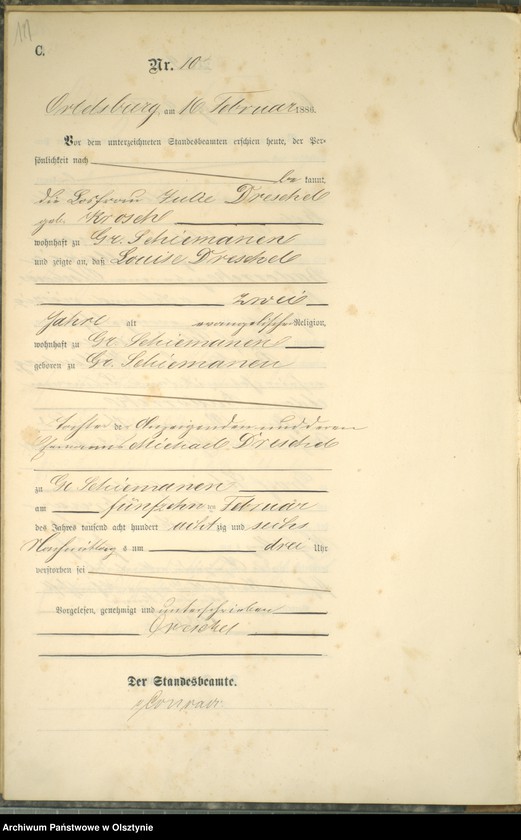 C.
Nr. 10
Ortelsburg, am 16 Februar 1886.
Vor dem unterzeichneten Standesbeamten erschien heute, der Per-
sönlichkeit nach
be kannt,
die Losfrau Julie Dreschel
geb. Krosch
wohnhaft zu Gr. Schiemanen
und zeigte an, daß Louise Dreschel
zwei
Jahre alt evangelischer Religion,
wohnhaft zu Gr. Schiemanen
geboren zu Gr. Schiemanen
Tochter der Anzeigenden und deren
Ehemanns Michael Dreschel
zu Gr. Schiemanen
am fünfzehn ten Februar
des Jahres tausend acht hundert acht zig und sechs
Nachmittags um drei Uhr
verstorben sei
Vorgelesen, genehmigt und unterschrieben
Dreschel
Der Standesbeamte.
Archiwum Państwowe w Olsztynie